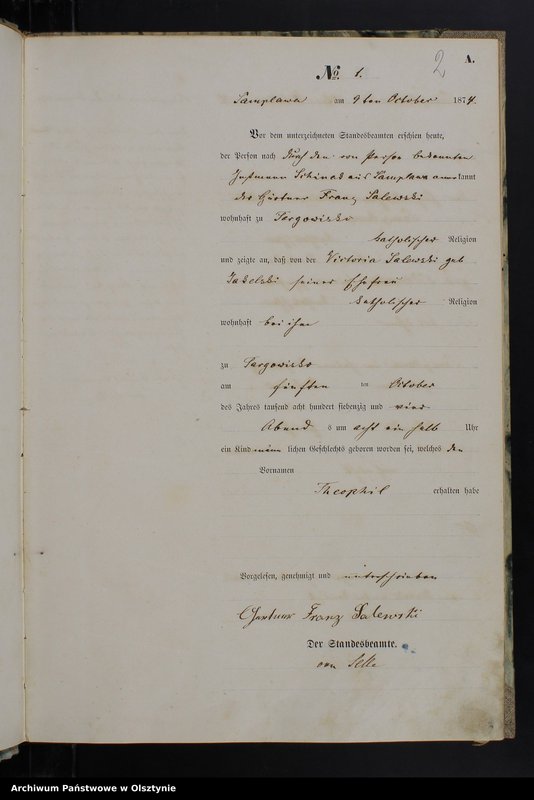 2
A.
No. 1.
Samplawa am 9ten October 1874.
Vor dem unterzeichneten Standesbeamten erschien heute,
der Person nach durch den von Person bekannten
aus Samplawa anerkannt
der Gärtner Franz Salewski
wohnhaft zu Targowisko
katholischer Religion
und zeigte an, daß von der Victoria Salewski geb
seiner Ehefrau
katholischer Religion
wohnhaft bei ihm
zu Targowisko
am fünften ten October
des Jahres tausend acht hundert siebenzig und vier
Abend s um acht ein halb Uhr
ein Kind männ lichen Geschlechts geboren worden sei, welches den
Vornamen
Theophil erhalten habe
Vorgelesen, genehmigt und unterschrieben
Gertner Franz Salewski
Der Standesbeamte.
von Selle
Archiwum Państwowe w Olsztynie